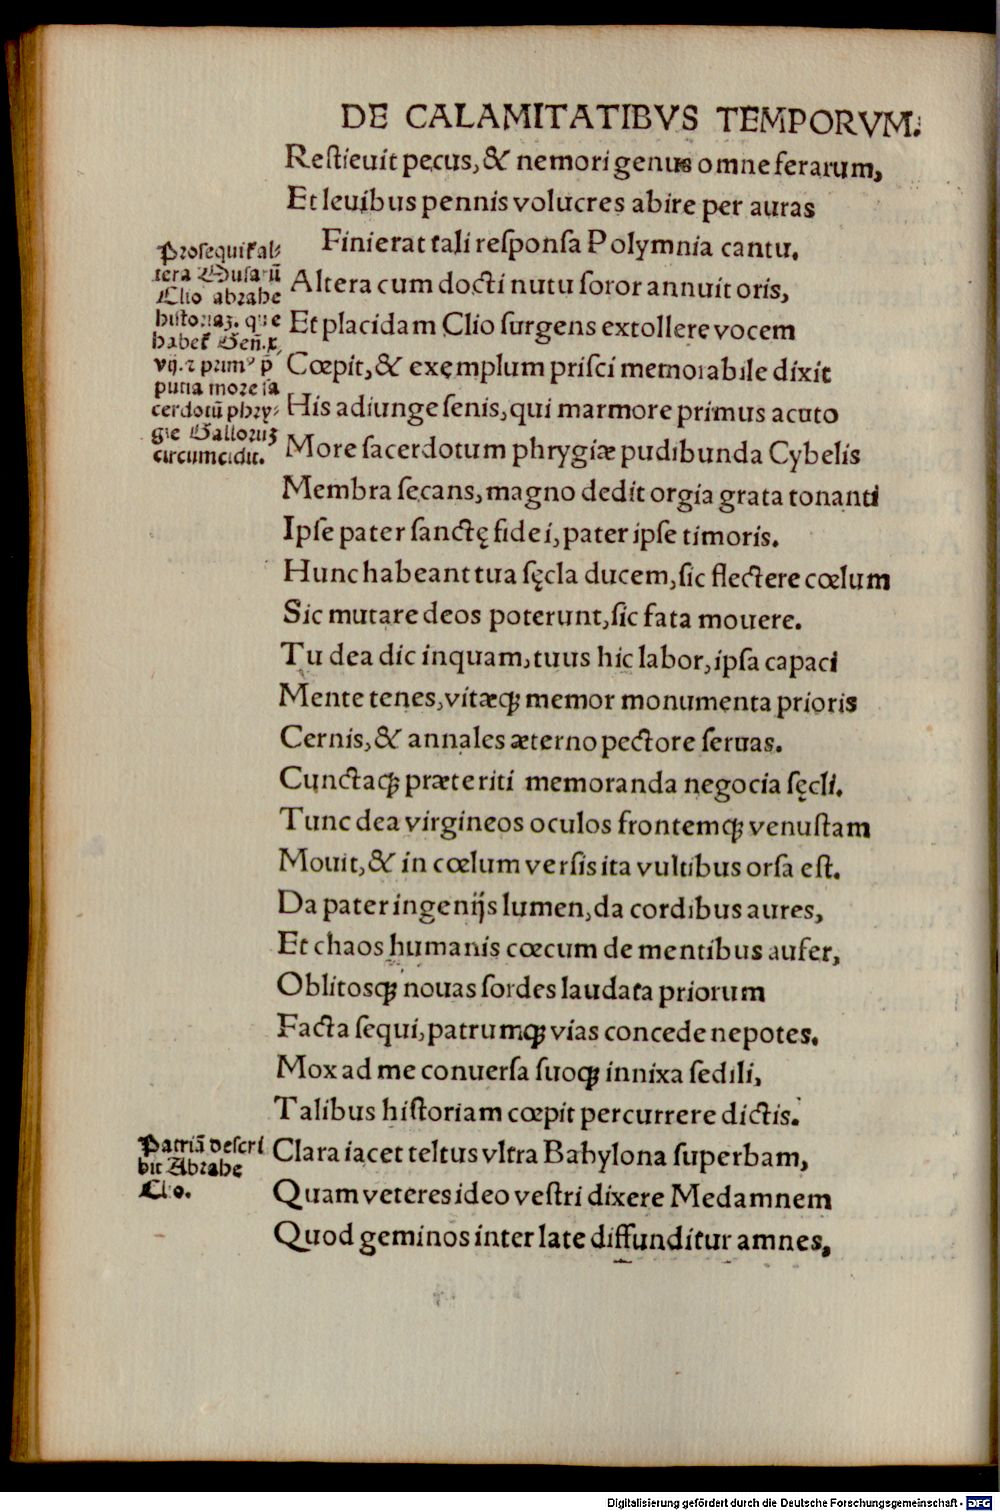 DE CALAMITATIBVS TEMPORVM.
Restieuit pecus, & nemori genus omne ferarum,
Et leuibus pennis volucres abire per auras
Finierat tali responsa Polymnia cantu.
Altera cum docti nutu soror annuit oris,
Et placidam Clio surgens extollere vocem
Cœpit, & exęmplum prisci memorabile dixit
His adiunge senis, qui marmore primus acuto
More sacerdotum phrygiæ pudibunda Cybelis
Membra secans, magno dedit orgia grata tonanti
Ipse pater sanctę fidei, pater ipse timoris.
Hunc habeant tua sęcla ducem, sic flectere cœlum
Sic mutare deos poterunt, sic fata mouere.
Tu dea dic inquam, tuus hic labor, ipsa capaci
Mente tenes, vitæqꝫ memor monumenta prioris
Cernis, & annales æterno pectore seruas.
Cunctaqꝫ præteriti memoranda negocia sęcli.
Tunc dea virgineos oculos frontemqꝫ venustam
Mouit, & in cœlum versis ita vultibus orsa est.
Da pater ingenijs lumen, da cordibus aures,
Et chaos humanis cœcum de mentibus aufer,
Oblitosqꝫ nouas sordes laudata priorum
Facta sequi, patrumqꝫ vias concede nepotes.
Mox ad me conuersa suoqꝫ innixa sedili,
Talibus historiam cœpit percurrere dictis.
Clara iacet teltus vltra Babylona superbam,
Quam veteres ideo vestri dixere Medamnem
Quod geminos inter late diffunditur amnes,
Prosequit᷑ al⸗
tera Musarū
Clio abrahe
historiaꝫ. que
habet᷑ Geñ.x
vij. ⁊ primꝰ p̄
putia more sa
cerdotū phry⸗
gie Galloruꝫ
circumcidit.
Patriā descri
bit Abrahe
Clio.
Digitalisierung gefördert durch die Deutsche Forschungsgemeinschaft - DFG